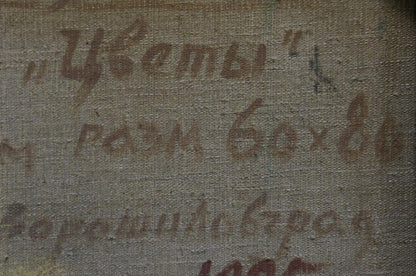 „Цветы"
м разм 60×80
Ворошиловград